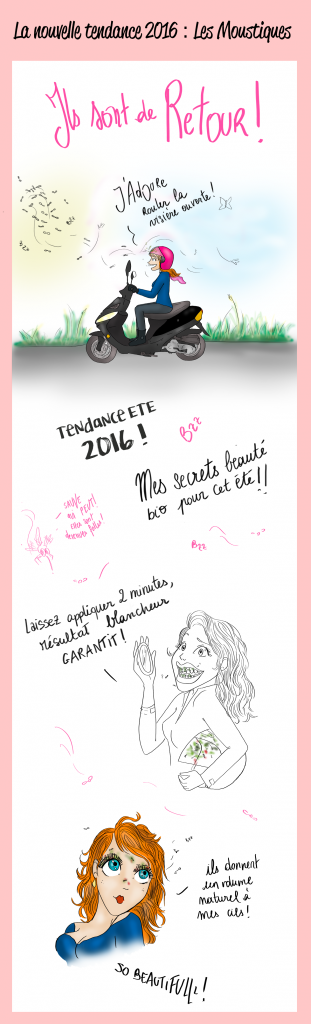 La nouvelle tendance 2016 : Les Moustiques
Ils sont de Retour !
J'Adore
rouler la
visière ouverte !
Bzz
TENDANCE ETE
2016 !
Bzz
Mes secrets beauté
bio pour cet été !!
Bzz
Laissez appliquer 2 minutes,
résultat blancheur
GARANTIT !
ils donnent
un volume
naturel à
mes cils !
SO BEAUTIFULLL !